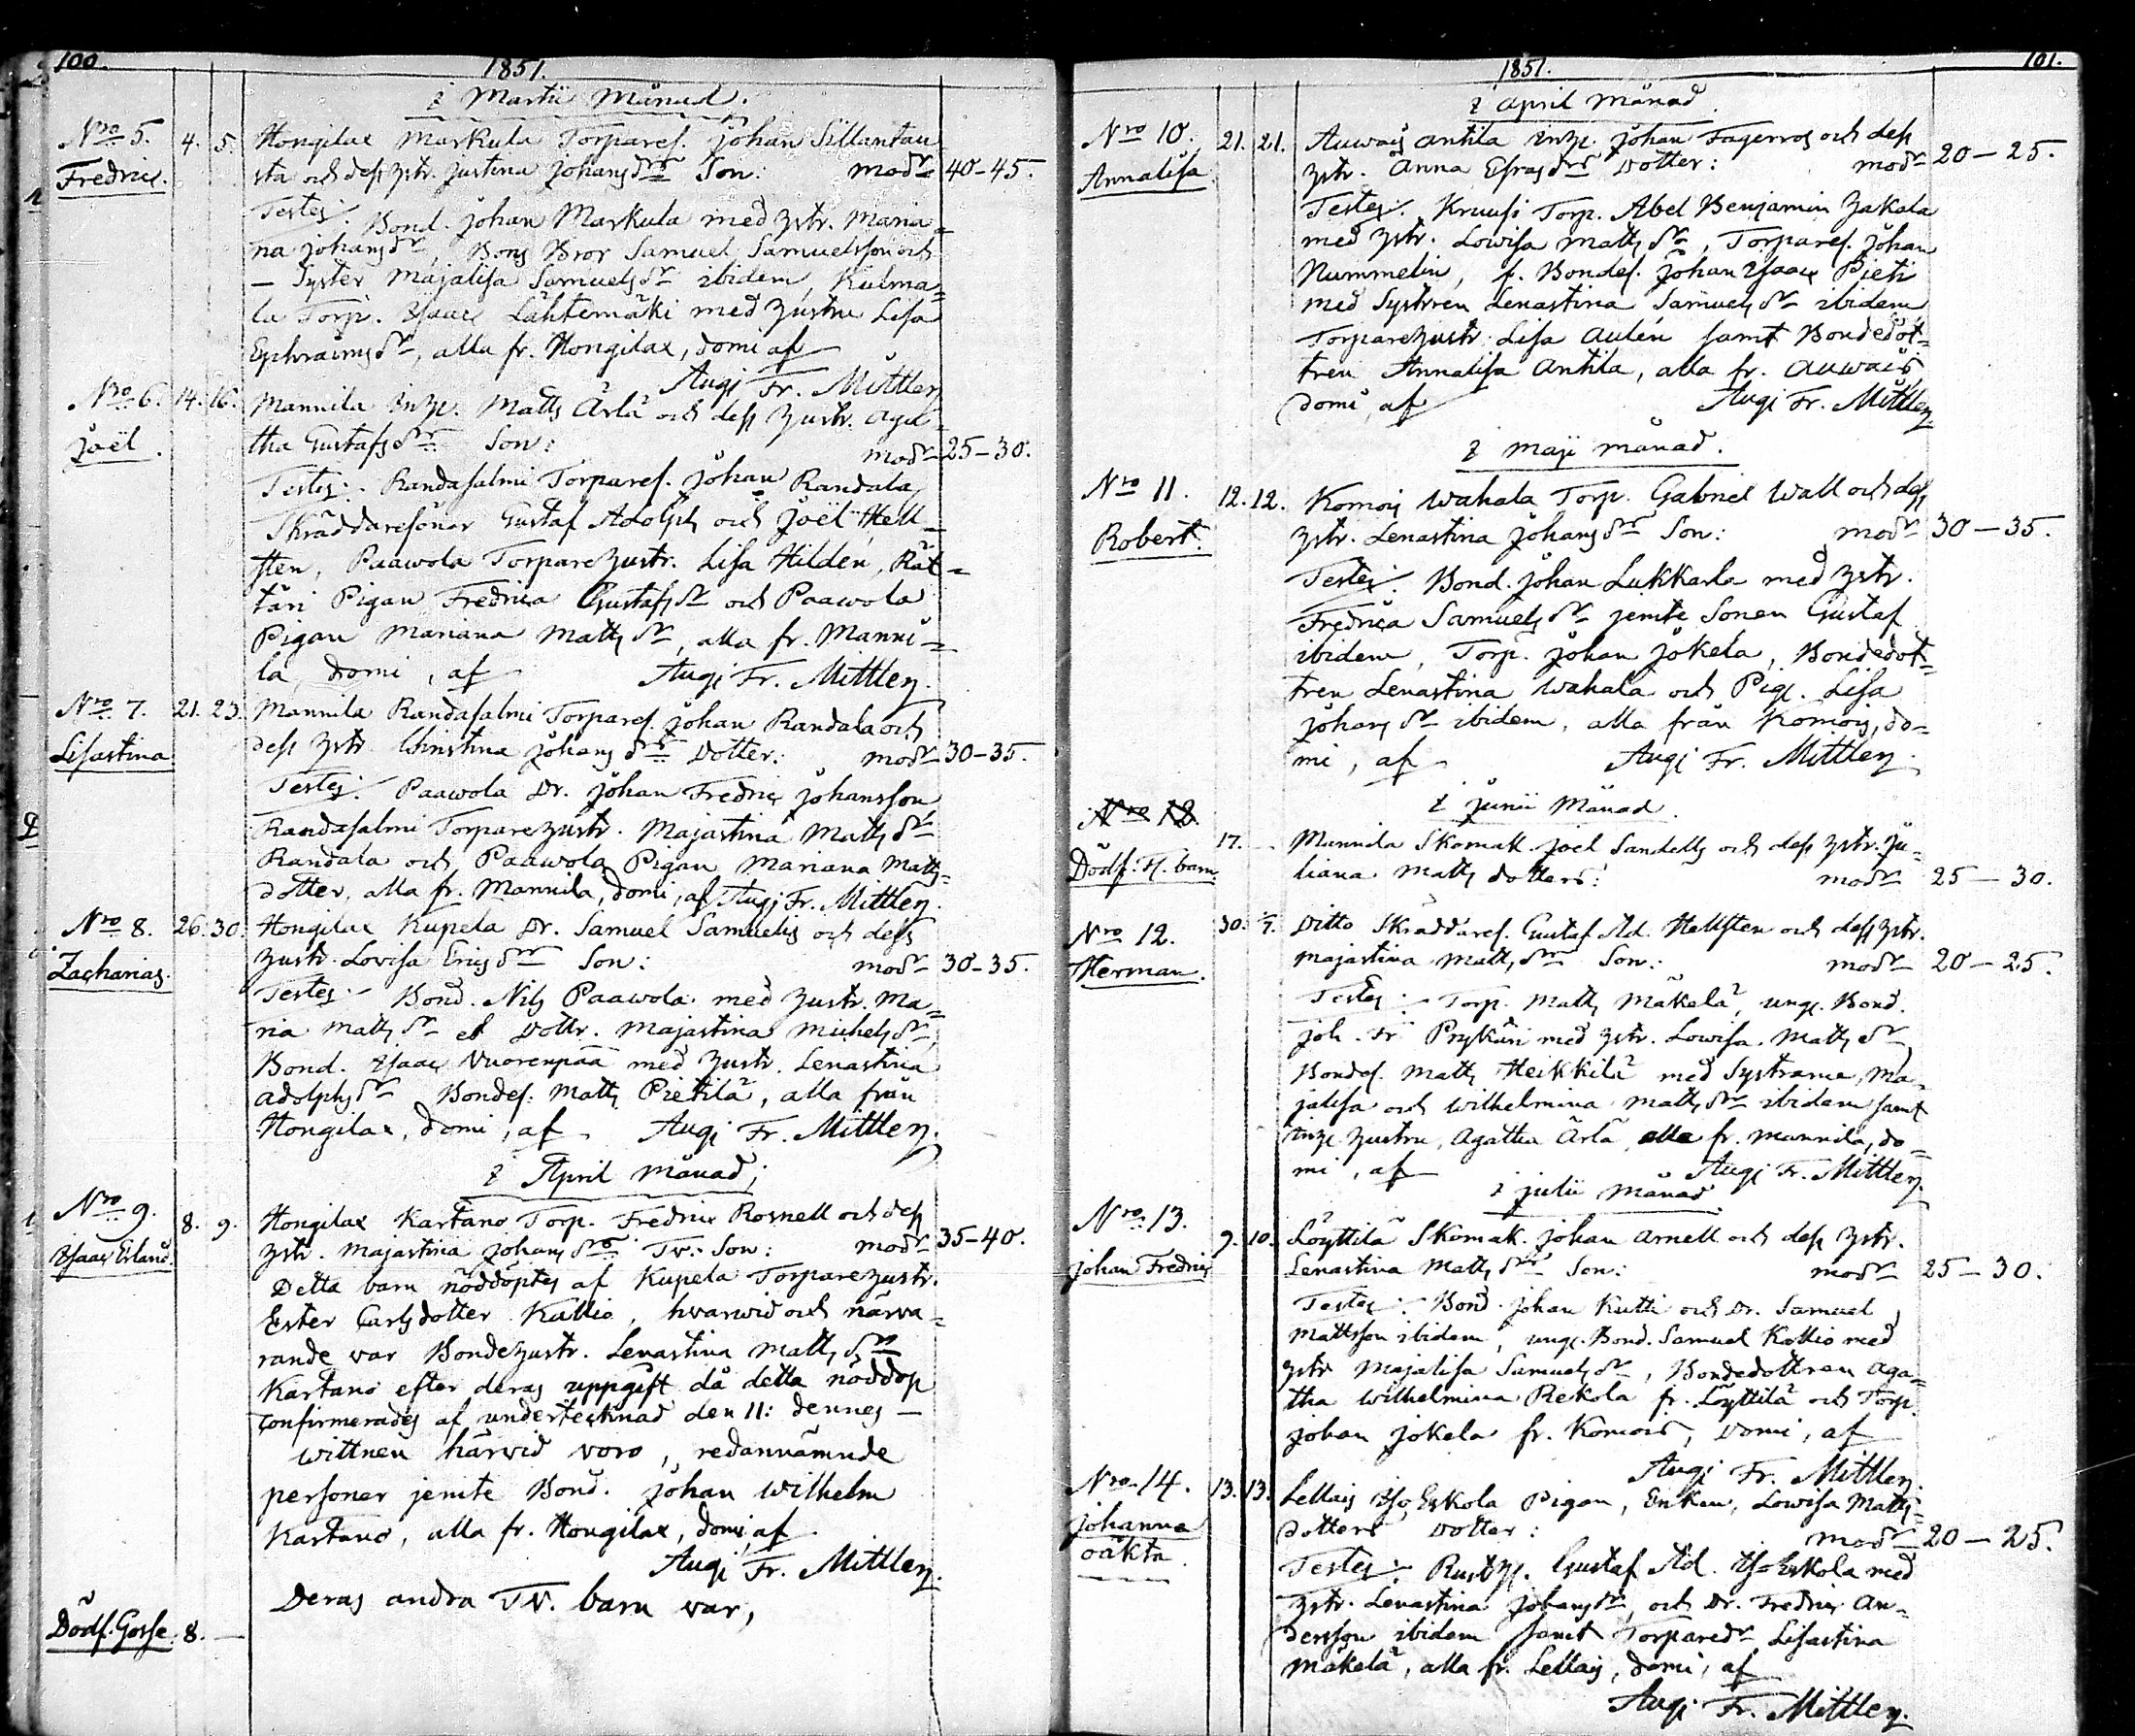 100.
1851.
i Martii Månad.
Nro 5. 4. 5. Hongilax Markula Torpares. Johan Sillantau
Fredric. sta och dess hstr. Justina Johansdrs Son: modr 40-45.
Testes: Bond. Johan Markula med hstr. Maria
na Johansdr, Bons Bror Samuel Samuelsson och
Syster Majalisa Samuelsdr ibidem, Kulma=
la Torp. Isaac Lähtemäki med hustru Lisa
Ephraimsdr, alla fr. Hongilax, domi af
Augi Fr. Mittler.
Nro 6. 14. 16. Mannila Inhs. Matts Ärlä och dess hustr. Aga
Joël. tha Gustafsdrs Son: modr 25-30.
Testes: Randasalmi Torpares. Johan Randala
Skräddaresöner Gustaf Adolph och Joël Hell=
sten, Paawola Torparehustr. Lisa Hildén, Rät=
täri Pigan Fredrica Gustafsdr och Paawola
Pigan Mariana Mattsdr, alla fr. Manni=
la, domi, af Augi Fr. Mittler.
Nro 7. 21. 23. Mannila Randasalmi Torpares. Johan Randala och
Lisastina dess hstr. Christina Johansdrs Dotter: modr 30-35.
Testes: Paawola Dr. Johan Fredric Johansson
Randasalmi Torparehustr. Majastina Mattsdr
Randala och Paawola Pigan Mariana Matts=
dotter, alla fr. Mannila, domi, af Augi Fr. Mittler.
Nro 8. 26. 30. Hongilax Kupela Dr. Samuel Samuelis och dess
Zacharias. hustr. Lovisa Ericsdrs Son: modr 30-35.
Testes: Bond. Nils Paawola med hustr. Ma=
ria Mattsdr et Dottr. Majastina Michelsdr,
Bond. Isaac Vuorenpää med hustr. Lenastina
Adolphsdr Bondes. Matts Pietilä, alla från
Hongilax, domi, af Augi Fr. Mittler.
i April Månad;
Nro 9. 8. 9. Hongilax Kartano Torp. Fredric Rosnell och dess
Isaac Erland. hstr. Majastina Johansdrs Tv. Son: modr 35-40.
Detta barn nöddöptes af Kupela Torparehustr.
Ester Carlsdotter Kallio, hwarwid och närwa=
rande war Bondehustr. Lenastina Mattsdr
Kartano efter deras uppgift då detta nöddop
confirmerades af undertecknad den 11: dennes
wittnen härwid voro, redannämnde
personer jemte Bond. Johan Wilhelm
Kartano, alla fr. Hongilax, domi, af
Augi Fr. Mittler.
Deras andra Tv. barn war,
Dödf. Gosse. 8. —
101.
1851.
i April Månad
Nro 10. 21. 21. Auwais Antila Inhs. Johan Fagerros och dess
Annalisa. hstr. Anna Esrasdrs Dotter: modr 20-25.
Testes: Kruusi Torp. Abel Benjamin Jakala
med hstr. Lowisa Mattsdr, Torpares. Johan
Nummelin, f. Bondes. Johan Isaac Pieti
med Systren Lenastina Samuelsdr ibidem
Torparehustr. Lisa Aulén samt Bondedot=
tren Annalisa Antila, alla fr. Auwais
domi, af Augi Fr. Mittler.
i Maji månad.
Nro 11. 12. 12. Komois Wahala Torp. Gabriel Wall och dess
Robert. hstr. Lenastina Johansdrs Son: modr 30-35.
Testes: Bond. Johan Lukkarla med hstr.
Fredrica Samuelsdr jemte Sonen Gustaf
ibidem, Torp. Johan Jokela, Bondedot=
tren Lenastina Wahala och Pig. Lisa
Johansdr ibidem, alla från Komois, do=
mi, af Augi Fr. Mittler.
i Junii Månad.
Nro 12.
17. — Mannila Skomak. Joel Sandell och dess hstr. Ju=
Dödf. Fl. barn. liana Matts dotters: modr 25-30.
Nro 12. 30. Ditto Skräddares. Gustaf Ad. Hellsten och dess hstr.
Herman. Majastina Mattsdrs Son: modr 20-25.
Testes: Torp. Matts Mäkelä, ung. Bond.
Joh. Fr. Prykäri med hstr. Lowisa Mattsdr
Bondes. Matts Heikkilä med Systrarne, Ma=
jalisa och Wilhelmina Mattsdr ibidem samt
Inhs hustru, Agatha Ärlä, alla fr. Mannila, do=
mi, af Augi Fr. Mittler.
i Julii Månad
Nro 13. 9. 10. Löyttilä Skomak. Johan Arnell och dess hstr.
Johan Fredric Lenastina Mattsdrs Son: modr 25-30.
Testes: Bond. Johan Kutti och Dr. Samuel
Mattsson ibidem, ung. Bond. Samuel Kallio med
hstr Majalisa Samuelsdr, Bondedottren Aga=
tha Wilhelmina Rekola fr. Löyttilä och Torp.
Johan Jokela fr. Komois, domi, af
Augi Fr. Mittler.
Nro 14. 13. 13. Lellais Iso Eskola Pigan, Enkan, Lowisa Matts=
Johanna dotters Dotter: modr 20-25.
oäkta. Testes: Rusth. Gustaf Ad. Iso Eskola med
hstr. Lenastina Johansdr, och Dr. Fredric An=
dersson ibidem samt Torparedr Lisastina
Mäkelä, alla fr. Lellais, domi, af
Augi Fr. Mittler.